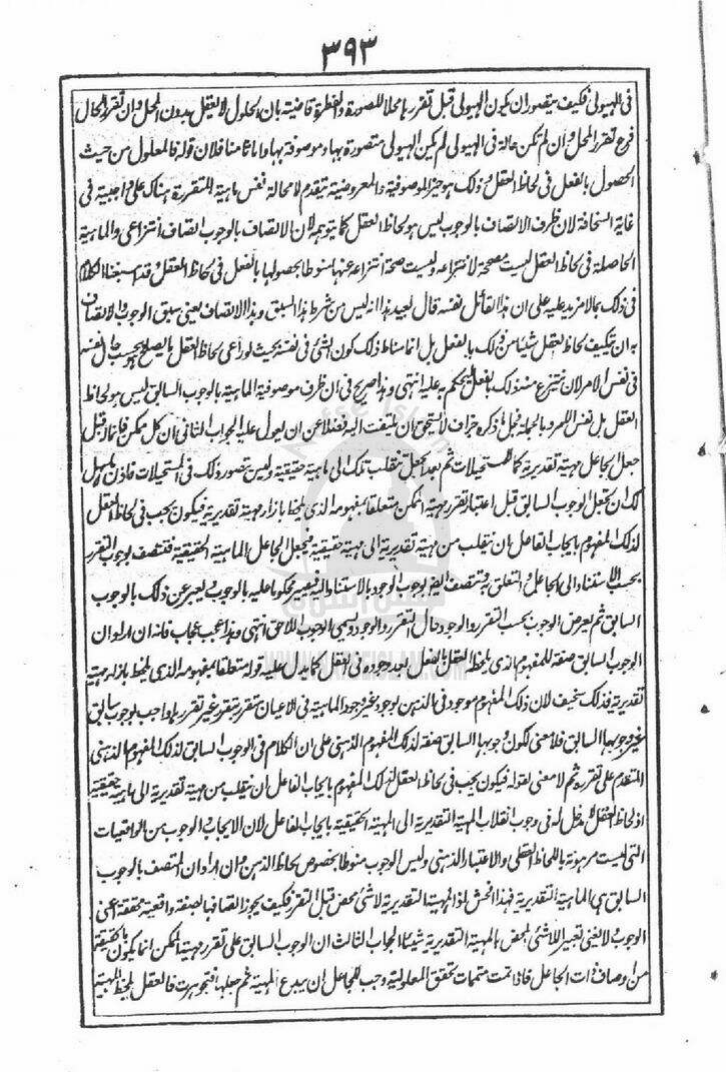 ٣٩٣
فى الهيولى فكيف يتصور ان يكون الهيولى قبل تقررها محلا للصورة والفطرة قاضية بان الحلول لا يعقل بدون المحل وان تقرر الحال
فرع تقرر المحل وان لم تكن حالة فى الهيولى لم يكن الهيولى متصورة بها وموصوفة بها واما ثامنا فلان قوله فالمعلول من حيث
الحصول بالفعل فى لحاظ العقل وذلك هو حيز الموصوفية والمعروضية يتقدم لا محالة نفس ماهية المتقررة هناك على واجبية فى
غاية السخافة لان ظرف الاتصاف بالوجوب ليس هو لحاظ العقل كما يتوهم لان الاتصاف بالوجوب اتصاف انتزاعى والماهية
الحاصلة فى لحاظ العقل ليست مصححة لانتزاعه وليست صحة انتزاعه عنها منوطا بحصولها بالفعل فى لحاظ العقل وقد اسبغنا الكلام
فى ذلك بما لا مزيد عليه على ان هذا القائل نفسه قال بعيد هذا انه ليس من شرط هذا السبق وهذا الاتصاف يعنى سبق الوجوب والاتصاف
به ان تكيف لحاظ العقل شيئا من ذلك بالفعل بل انما مناط ذلك كون الشئ فى نفسه بحيث لو راعى لحاظ العقل بالصلح بحسب حال نفسه
فى نفس الامر لان ينتزع منه ذلك بالفعل يحكم به عليه انتهى وهذا صريح فى ان ظرف موصوفية الماهية بالوجوب السابق ليس هو لحاظ
العقل بل نفس الامر وبالجملة فجل ما ذكره خراف لا يستحق ان يلتفت اليه فضلا عن ان يعول عليه الجواب الثانى ان كل ممكن فانما قبل
جعل الجاعل مهية تقديرية كما للمستحيلات ثم بعد الجعل تنقلب تلك الى ماهية حقيقية وليس يتصور ذلك فى المستحيلات فاذن
لك ان تجعل الوجوب السابق قبل اعتبار تقرر مهية الممكن متعلقا بمفهومه الذى يلحظ بازاء مهية تقديرية فيكون يجب فى لحاظ العقل
لذلك المفهوم بايجاب الفاعل ان تنقلب من مهية تقديرية الى مهية حقيقية فيجعل الجاعل الماهية الحقيقية فتتصف بوجوب التقرر
بحسب الاستناد الى الجاعل والتعلق به وتتصف ايضا بوجوب الوجود بالاستناد اليه فيصير محكوما عليه بالوجوب ويعبر عن ذلك بالوجوب
السابق ثم يعرض الوجوب بحسب التقرر والوجود حال التقرر والوجود ويسمى الوجوب اللاحق انتهى وهذا عجب عجاب فانه ان اراد ان
الوجوب السابق صفة للمفهوم الذى يلحظ العقل بالفعل بعد وجوده فى العقل كما يدل عليه قوله متعلقا بمفهومه الذى يلحظ بازاء مهية
تقديرية فذلك سخيف لان ذلك المفهوم موجود فى الذهن بوجود غير وجود الماهية فى الاعيان متقرر بتقرر غير تقررها واجب بوجوب سابق
غير وجوبها السابق فلا معنى لكون وجوبها السابق صفة لذلك المفهوم الذهنى على ان الكلام فى الوجوب السابق لذلك المفهوم الذهنى
المتقدم على تقرره ثم لا معنى لقوله فيكون يجب فى لحاظ العقل لذلك المفهوم بايجاب الفاعل ان تنقلب من مهية تقديرية الى ماهية حقيقية
اذ لحاظ العقل لا مدخل له فى وجوب انقلاب المهية التقديرية الى المهية الحقيقية بايجاب الفاعل لان الايجاب والوجوب من الواقعيات
التى ليست مرهونة باللحاظ العقلى والاعتبار الذهنى وليس الوجوب منوطا بخصوص لحاظ الذهن وان اراد ان المتصف بالوجوب
السابق هى الماهية التقديرية فهذا افحش اذ المهية التقديرية لا شئ محض قبل التقرر فكيف يجوز اتصافها بصفة واقعية محققة اعنى
الوجوب ولا يغنى تعبير اللاشئ المحض بالمهية التقديرية شيئا الجواب الثالث ان الوجوب السابق على تقرر مهية الممكن انما يكون بالحقيقة
من اوصاف ذات الجاعل فاذا تمت متممات تحقق المعلولية وجب للجاعل ان يبدع المهية ثم جعلها فتجوهرت فالعقل يلحظ المهية